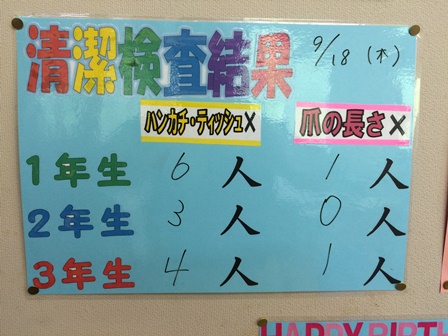 清潔検査結果 9/18 (木)
ハンカチ・ティッシュ× 爪の長さ×
1年生 6人 1人
2年生 3人 0人
3年生 4人 1人
HAPPY BIRTH